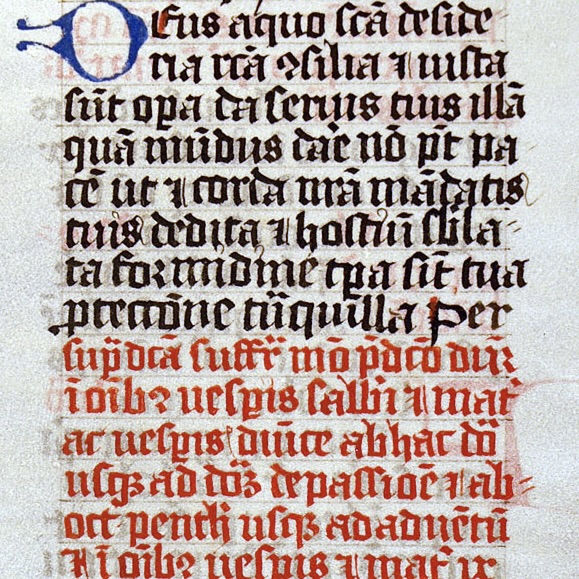 Deus a quo scā deside
ria rcā ꝯsilia ⁊ iusta
sūt opa da seruis tuis illā
quā mūdus dāe nō pt̄ pa
cē ut ⁊ corda nrā mādatis
tuis dedita ⁊ hostiū sbla-
ta formidine tpa sīt tua
ptectōne tūquilla Per
sup̄dcā suffr̄ mō p̄dcō dūr̄
ī oībꝫ uesp̄is sabbi ⁊ mat̄
ac uesp̄is diūice ab hac dō
usqꝫ ad doꝫ de passiōe ⁊ ab-
oct pentħ usqꝫ ad aduētū
⁊ ī oībꝫ uesp̄is ⁊ mat̄ ix